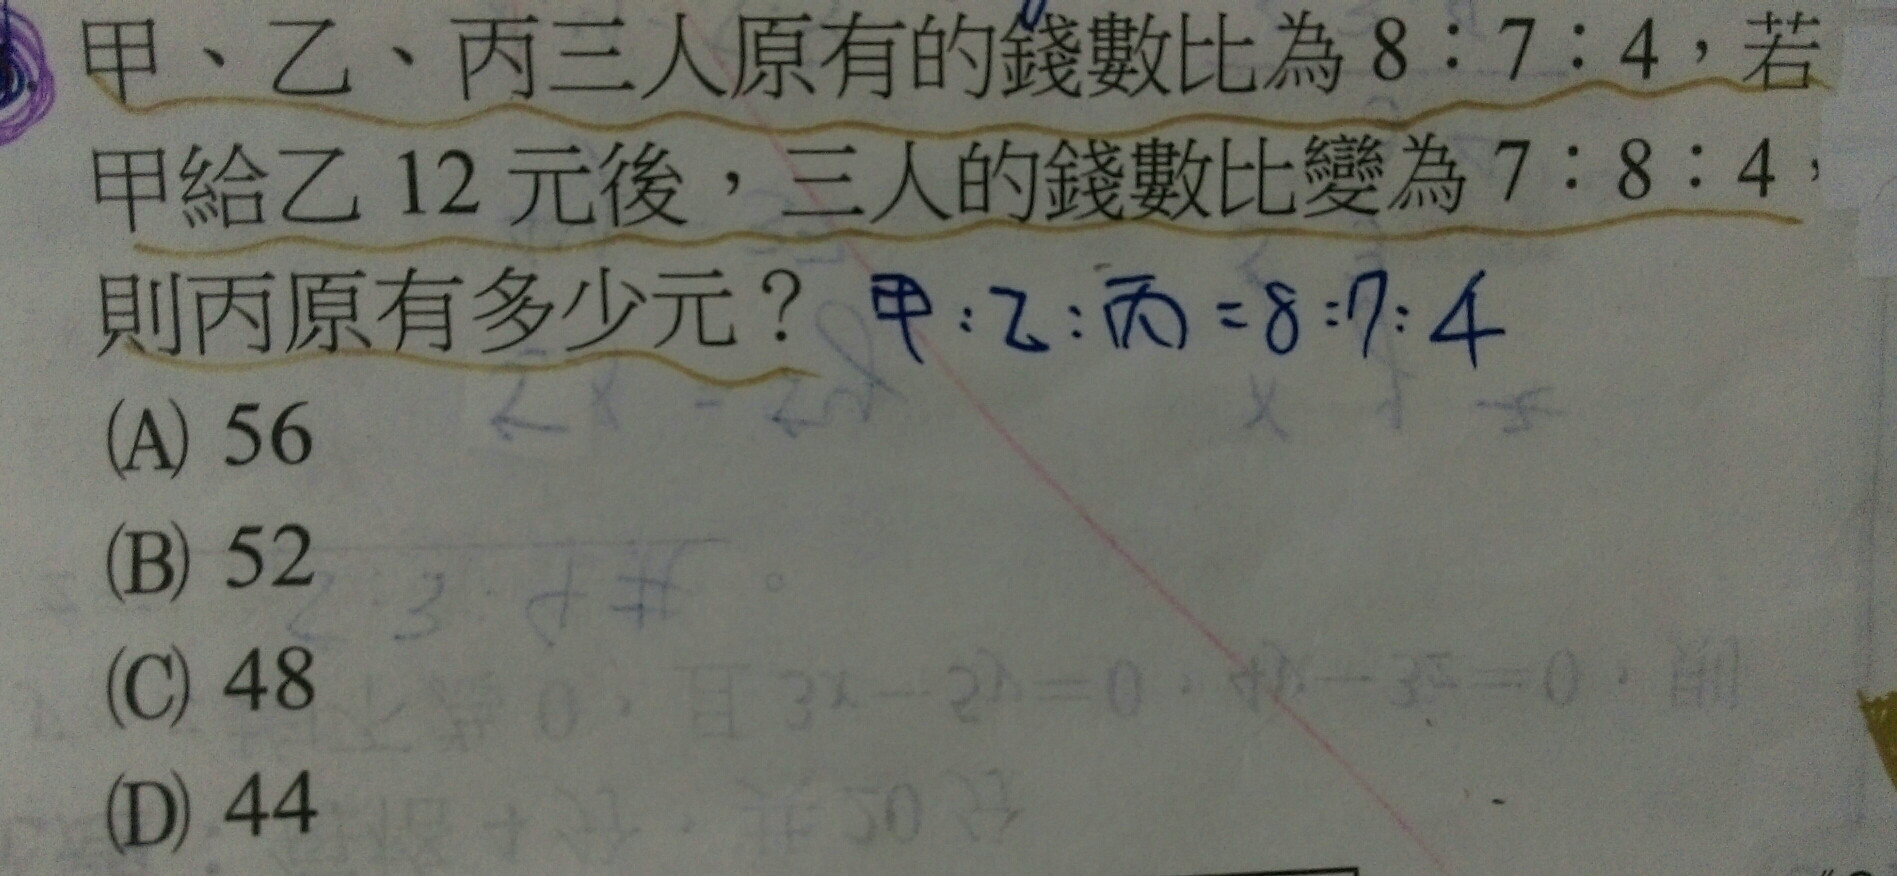 甲、乙、丙三人原有的錢數比為 8：7：4，若
甲給乙 12 元後，三人的錢數比變為 7：8：4，
則丙原有多少元？ 甲:乙:丙=8:7:4
(A) 56
(B) 52
(C) 48
(D) 44